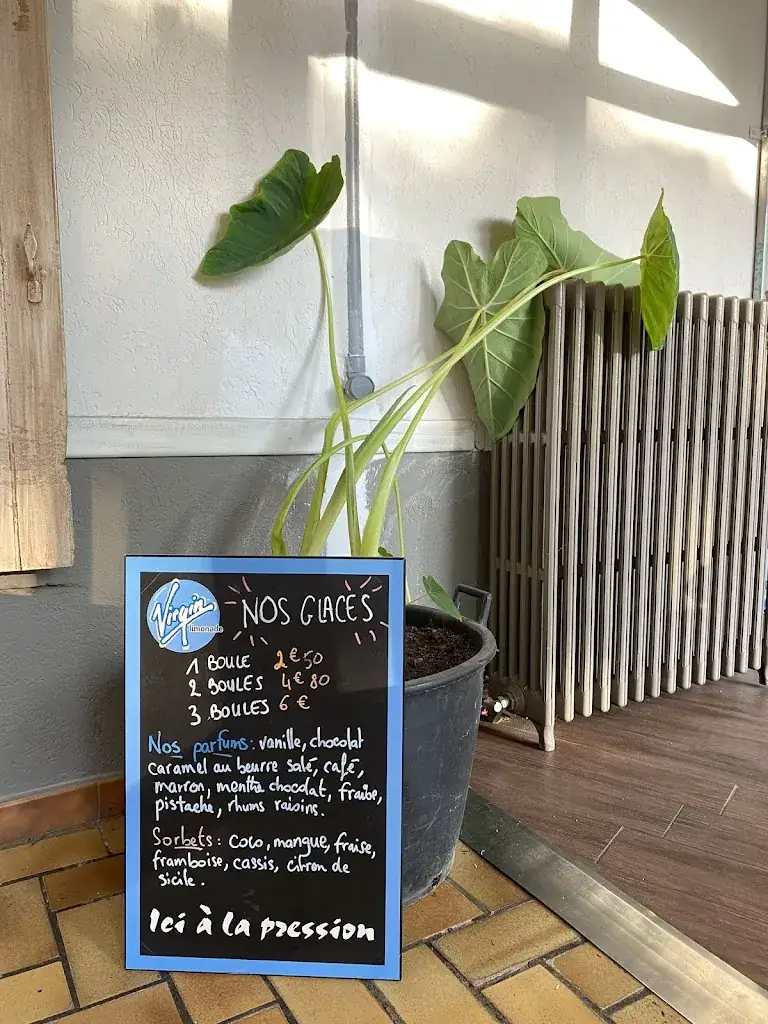 Virgin
limonade
NOS GLACES
1 BOULE 2€50
2 BOULES 4€80
3 BOULES 6€
Nos parfums : vanille, chocolat
caramel au beurre salé, café,
marron, menthe chocolat, fraise,
pistache, rhums raisins.
Sorbets : Coco, mangue, fraise,
framboise, cassis, citron de
sicile.
Ici à la pression